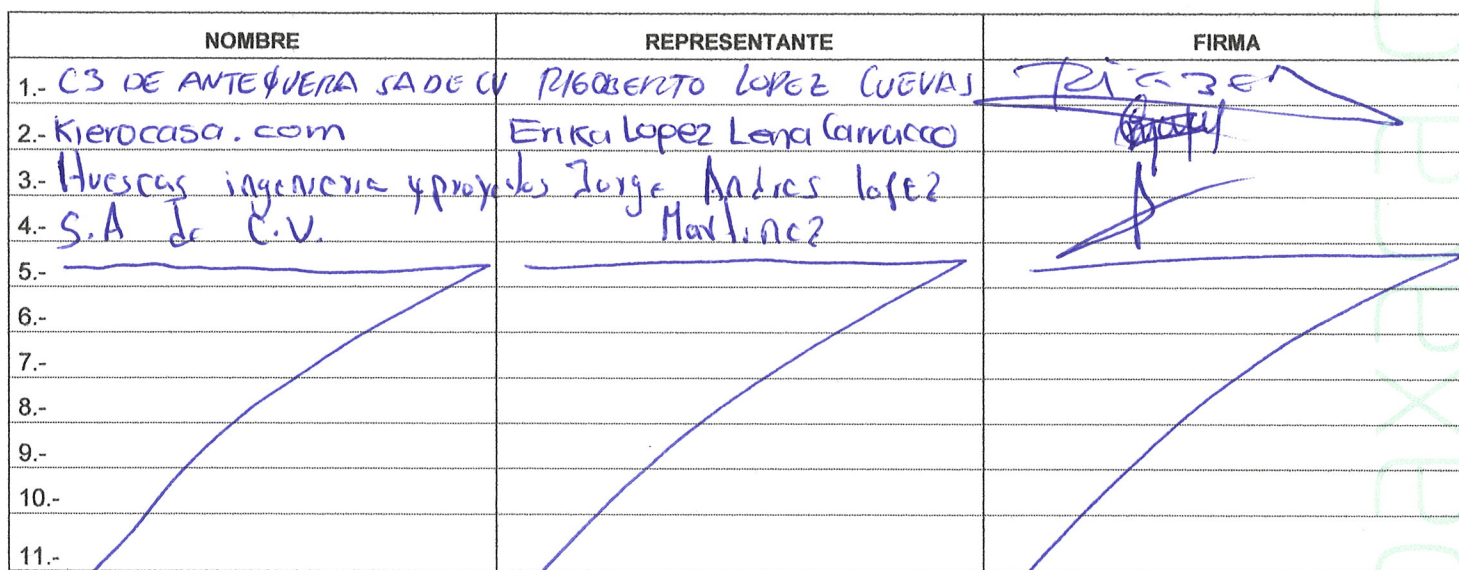 NOMBRE REPRESENTANTE FIRMA
1.- C3 DE ANTEQUERA SA DE CV RIGOBERTO LOPEZ CUEVAS
2.- Kierocasa.com Erika Lopez Lena Carrasco
3.- Huescas ingenieria y proyectos Jorge Andres lopez
4.- S.A de C.V. Martinez
5.-
6.-
7.-
8.-
9.-
10.-
11.-